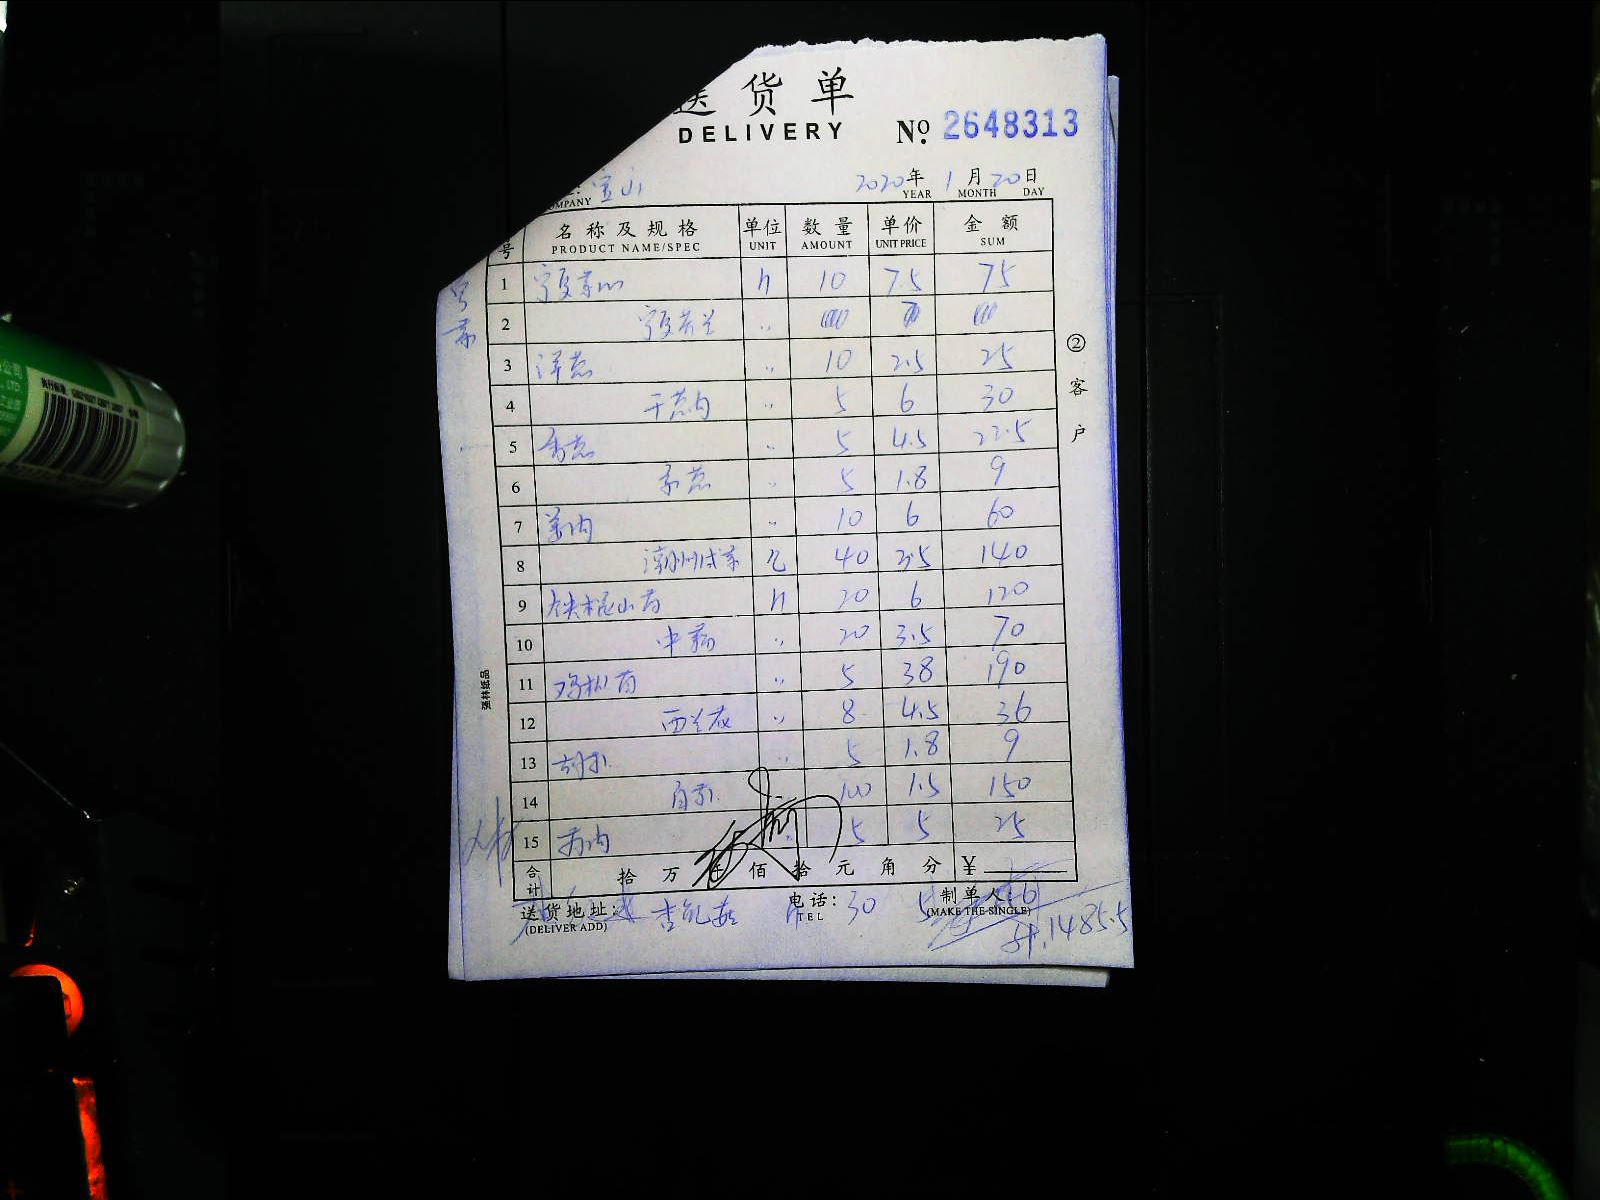 送货单
DELIVERY № 2648313
OMPANY 宝山 2020年 1月 20日
YEAR MONTH DAY
号 名称及规格 单位 数量 单价 金额
PRODUCT NAME/SPEC UNIT AMOUNT UNIT PRICE SUM
1 宁夏菜心 斤 10 7.5 75
2 宁夏芥兰 〃
3 洋葱 〃 10 2.5 25
4 干葱肉 〃 5 6 30
5 香葱 〃 5 4.5 22.5
6 〃 5 1.8 9
7 姜肉 〃 10 6 60
8 潮州咸菜 40 3.5 140
9 铁棍山药 斤 20 6 120
10 〃 20 3.5 70
11 鸡枞菌 〃 5 38 190
12 西兰花 〃 8 4.5 36
13 〃 5 1.8 9
14 100 1.5 150
15 〃 5 5 25
合计 拾 万 仟 佰 拾 元 角 分 ¥
送货地址: 杏鲍菇 电话: 30 5 制单人: 6
(DELIVER ADD) TEL (MAKE THE SINGLE)
1485.5
②客户
强林纸品